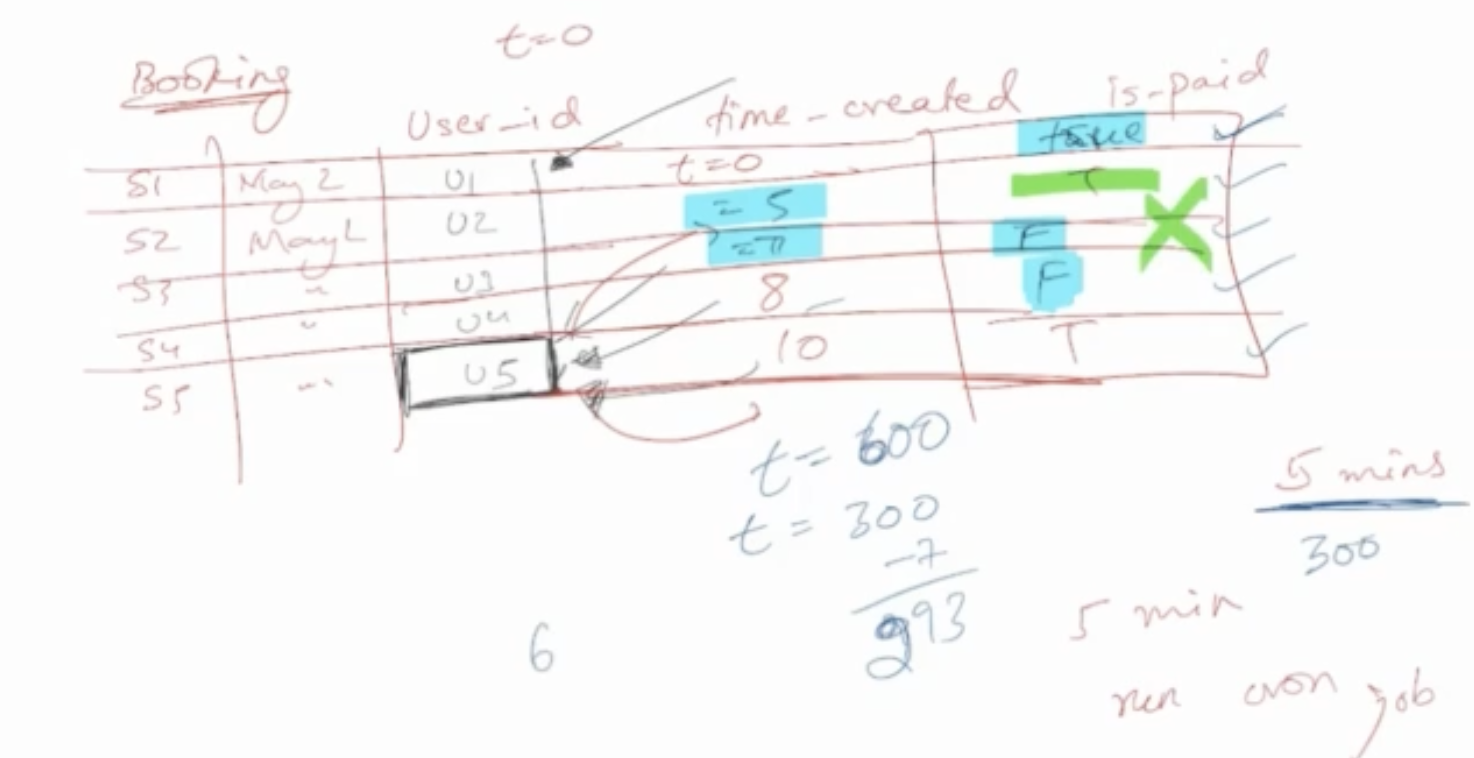 t=0
Booking
User-id time-created is-paid
true
S1 May 2 U1 t=0 T
S2 May 2 U2 = 5
S3 " U3 =7 F
S4 " U4 8 F
S5 " U5 10 T
t= 600
t= 300
-7
293
5 mins
300
5 min
6
run cron job